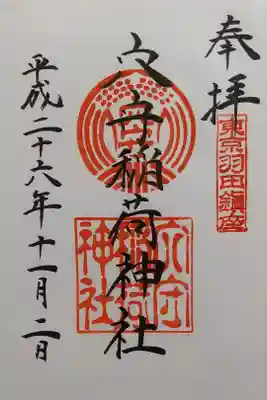 奉拝
東京羽田鎮座
穴守稲荷神社
穴守稲荷神社
平成二十六年十一月二日